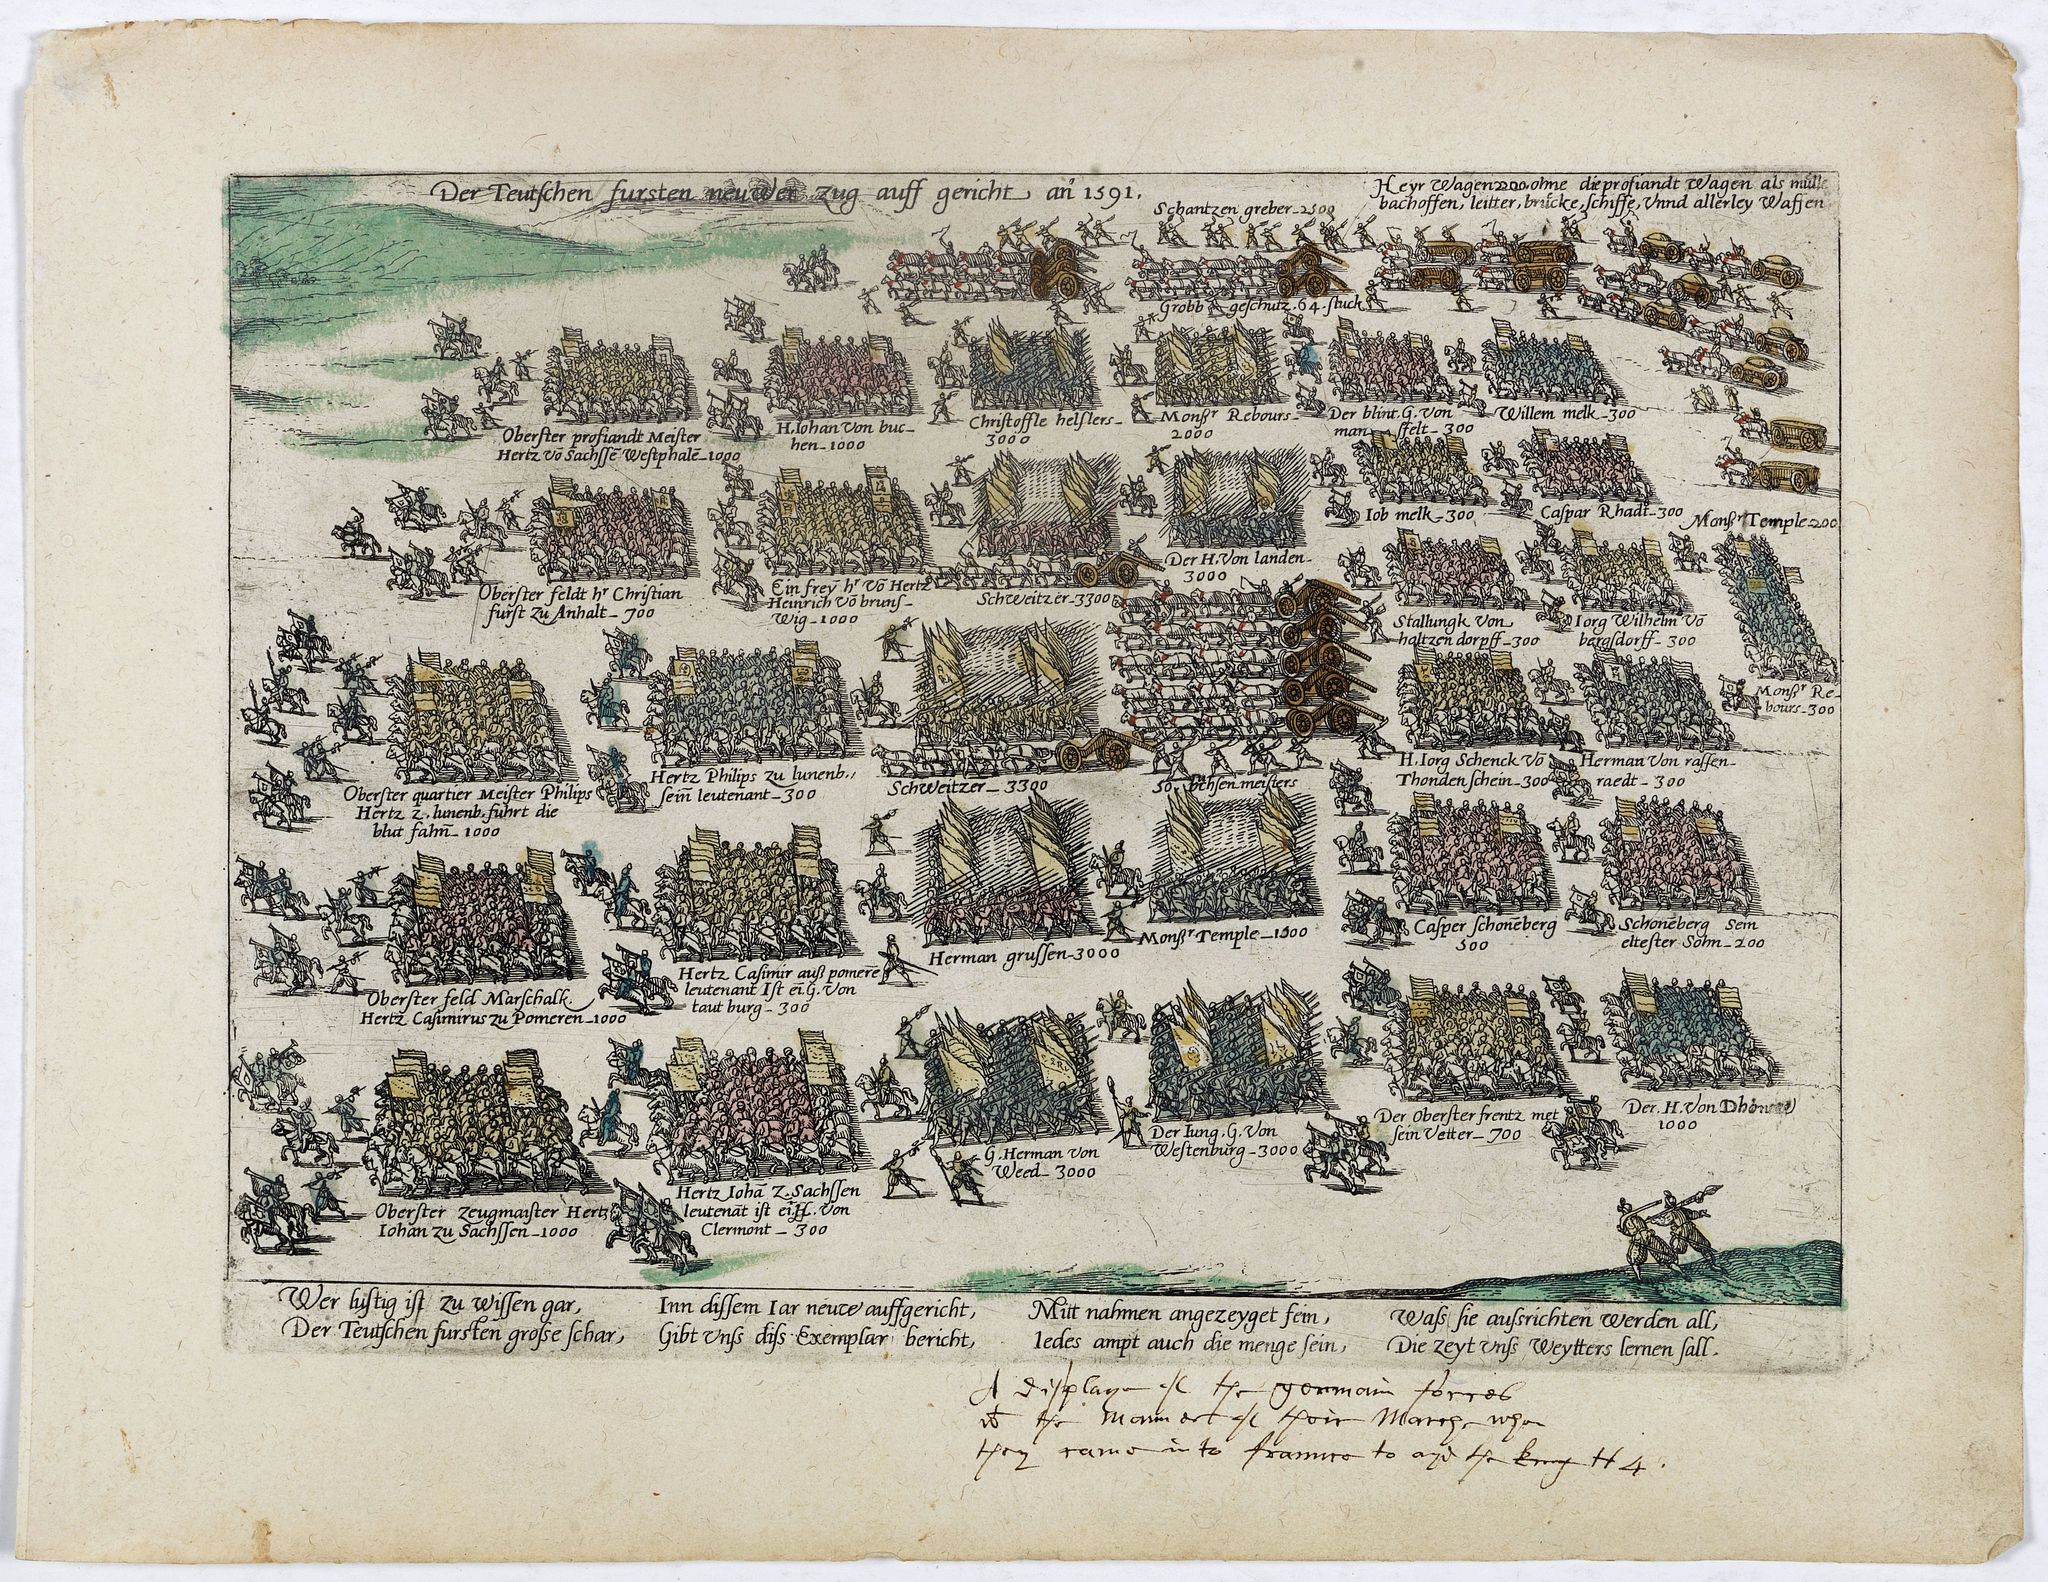 Der Teutschen fursten neuwer zug auff gericht an° 1591.
Heyr Wagen 200 ohne die profiandt Wagen als mülle
bachoffen, leitter, brücke, schiffe, Vnnd allerley Waffen
Schantzen greber–2500
Grobb geschutz. 64. stuck
Oberster profiandt Meister
Hertz vō Sachssē Westphalē–1000
H. Iohan Von buc-
hen–1000
Christoffle helslers–
3000
Monßr Rebours–
2000
Der blint. G. Von
man sfelt–300
Willem melk–300
Oberster feldt hr Christian
furst zu Anhalt–700
Ein frey hr Vō Hertz
Heinrich Vō bruns-
Wig–1000
SchWeitzer–3300
Der H. Von landen-
3000
Iob melk–300
Caspar Rhadt–300
Monßr Temple–200
Stallungk Von
haltzen dorpff–300
Iorg Wilhelm Vō
bergsdorff–300
Monßr Re-
bours–300
Oberster quartier Meister Philips
Hertz z. lunenb. fuhrt die
blut fahn–1000
Hertz Philips zu lunenb.,
sein leutenant–300
SchWeitzer–3300
50. bchsen meisters
H. Iorg Schenck Vō
Thonden schein–300
Herman Von rassen-
raedt–300
Oberster feld Marschalk.
Hertz Casimirus zu Pomeren–1000
Hertz Casimir auß pomerē
leutenant Ist ei. G. Von
taut burg–300
Herman grussen–3000
Monßr Temple–1500
Casper schonēberg
500
Schonēberg sein
eltester Sohn–200
Oberster zeugmaister Hertz
Iohan zu Sachssen–1000
Hertz Iohā z. Sachssen
leutenāt ist ei. H. Von
Clermont–300
G. Herman von
Weed–3000
Der Iung. G. Von
Westenburg–3000
Der Oberster frentz met
sein Vetter–700
Der. H. Von
1000
Wer lustig ist zu wissen gar,
Der Teutschen fursten grosse schar,
Inn dissem Iar neuwe auffgericht,
Gibt Vnss diss Exemplar bericht,
Mitt nahmen angezeyget fein,
Iedes ampt auch die menge sein,
Wass sie aussrichten werden all,
Die zeyt Vnss Weytters lernen sall.
A displaye of the germain forces
the manner of their March, when
they came into fraunce to ayd the king H 4.